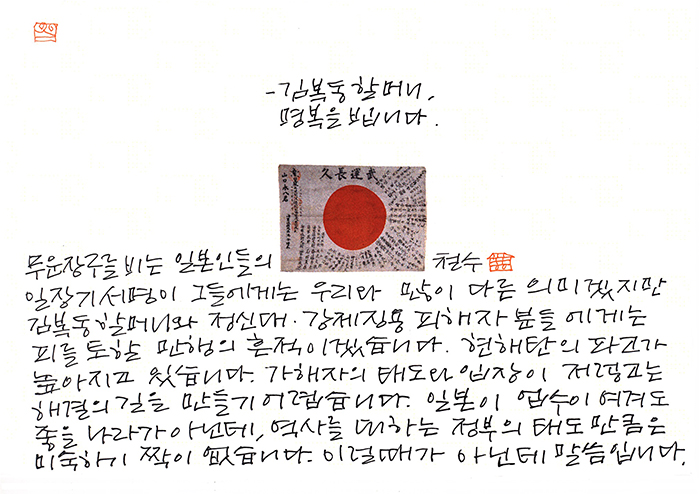 -김복동할머니,
명복을 빕니다.
武運長久
무운장구를 비는 일본인들의
철수
일장기서명이 그들에게는 우리와 많이 다른 의미겠지만
김복동할머니와 정신대·강제징용 피해자 분들에게는
피를 토할 만행의 흔적이겠습니다. 현해탄의 파고가
높아지고 있습니다. 가해자의 태도와 입장이 저렇고는
해결의 길을 만들기 어렵습니다. 일본이 업수이 여겨도
좋을 나라가 아닌데, 역사를 대하는 정부의 태도만큼은
미숙하기 짝이 없습니다. 이럴때가 아닌데 말씀입니다.